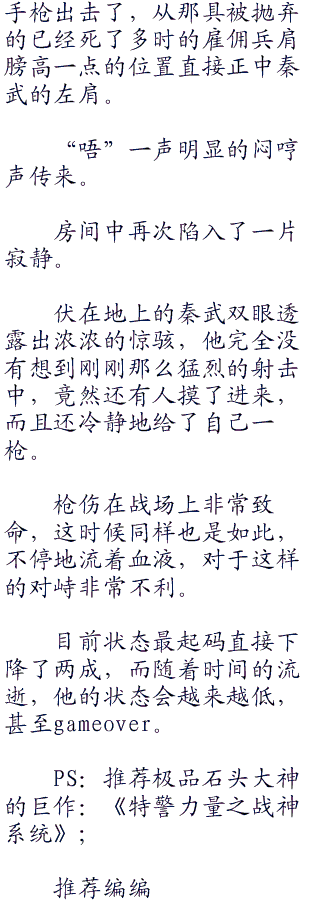 手枪出去了，从那具被抛弃
的已经死了多时的雇佣兵肩
膀高一点的位置直接正中秦
武的左肩。
“唔”一声明显的闷哼
声传来。
房间中再次陷入了一片
寂静。
伏在地上的秦武双眼透
露出浓浓的惊骇，他完全没
有想到刚刚那么猛烈的射击
中，竟然还有人摸了进来，
而且还冷静地给了自己一
枪。
枪伤在战场上非常致
命，这时候同样也是如此，
不停地流着血液，对于这样
的对峙非常不利。
目前状态最起码直接下
降了两成，而随着时间的流
逝，他的状态会越来越低，
甚至gameover。
PS：推荐极品石头大神
的巨作：《特警力量之战神
系统》；
推荐编编